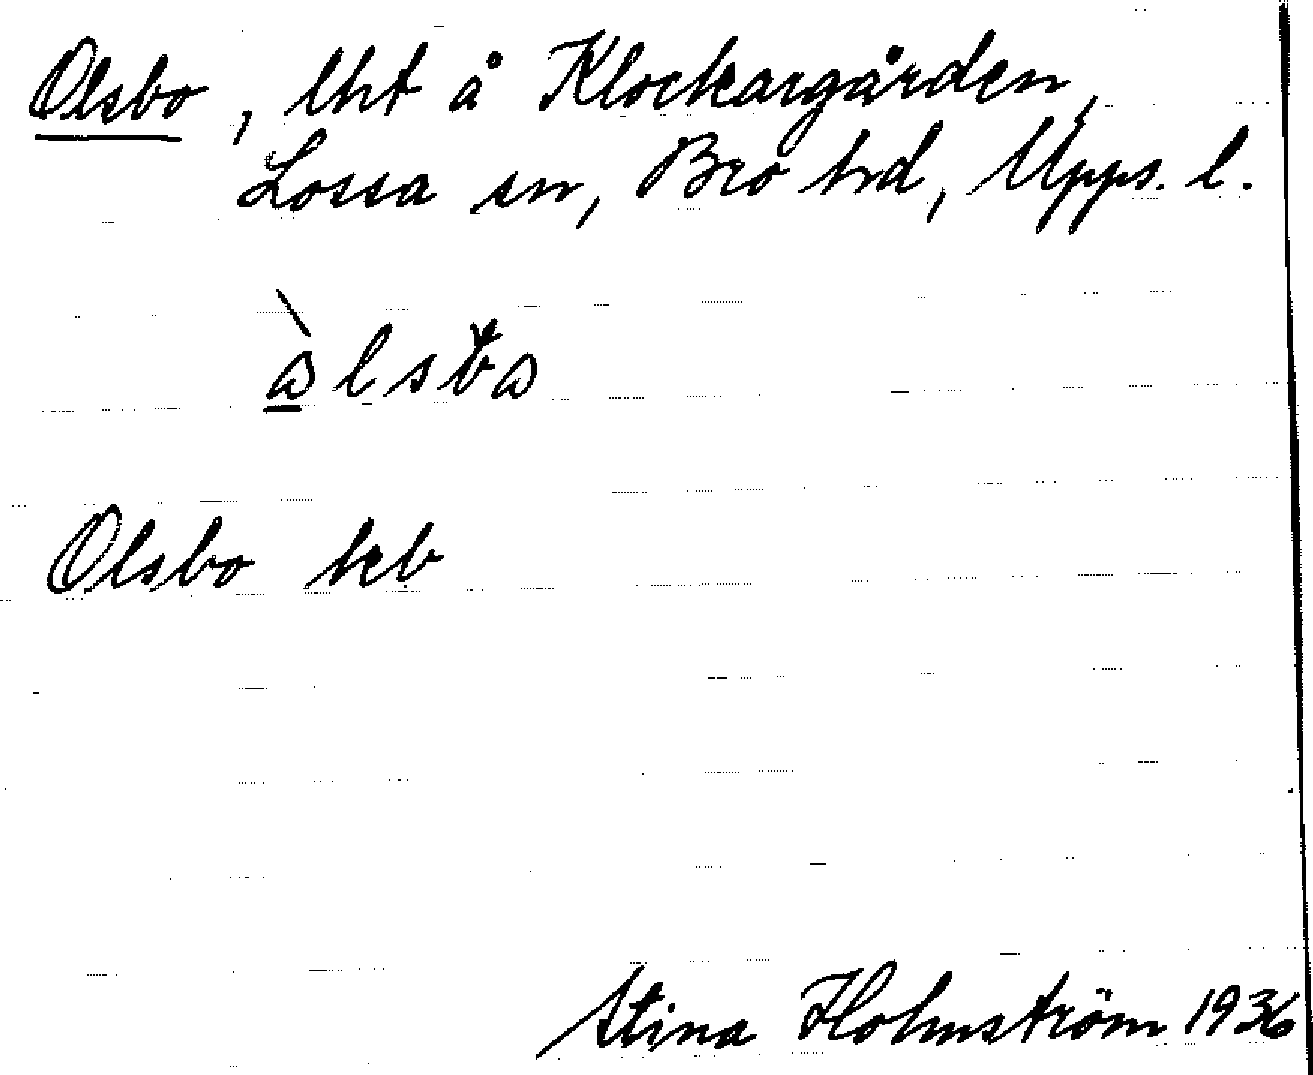 Olsbo, lht å Klockargården,
Lossa sn, Bro hd, Upps. l.
Olsbo keb
Stina Holmström 1936